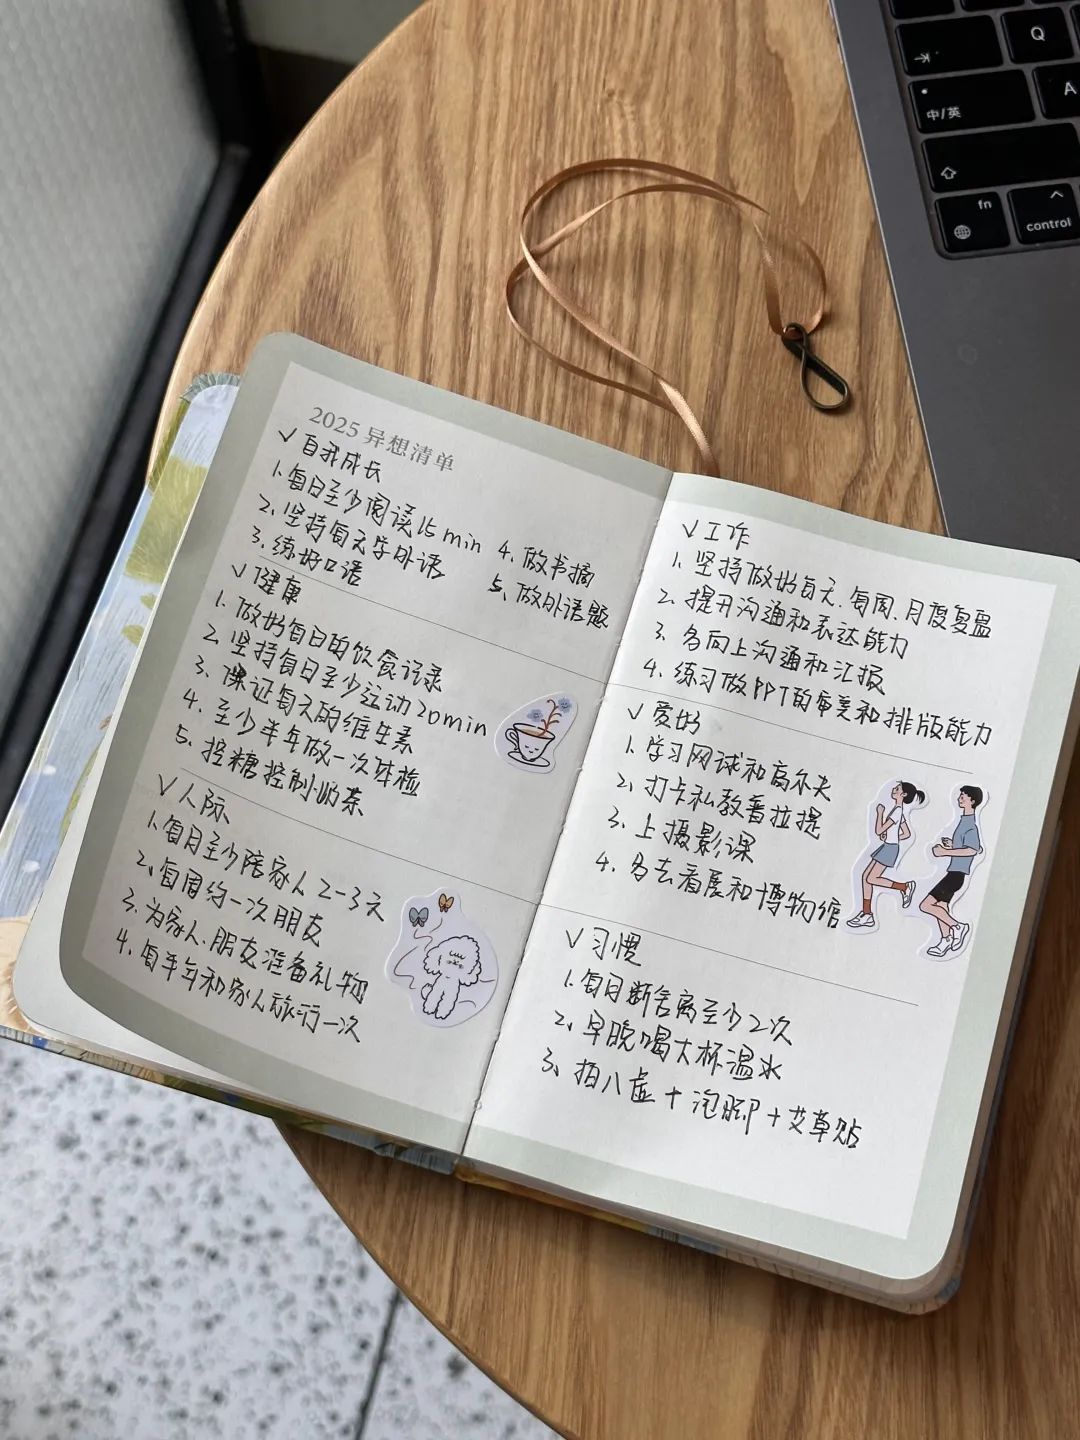 2025 异想清单
✓ 自我成长
1. 每日至少阅读15min
2. 坚持每天学外语
3. 练好口语
4. 做书摘
5. 做外语题
✓ 健康
1. 做好每日的饮食记录
2. 坚持每日至少运动20min
3. 保证每天的维生素
4. 至少半年做一次体检
5. 控糖控制奶茶
✓ 人际
1. 每月至少陪家人2-3天
2. 每周约一次朋友
3. 为家人、朋友准备礼物
4. 每半年和家人旅行一次
✓ 工作
1. 坚持做好每天、每周、月度复盘
2. 提升沟通和表达能力
3. 多向上沟通和汇报
4. 练习做PPT的审美和排版能力
✓ 爱好
1. 学习网球和高尔夫
2. 打卡私教普拉提
3. 上摄影课
4. 多去看展和博物馆
✓ 习惯
1. 每日断舍离至少2次
2. 早晚喝大杯温水
3. 拍八虚+泡脚+艾草贴
Q
A
中/英
fn
control